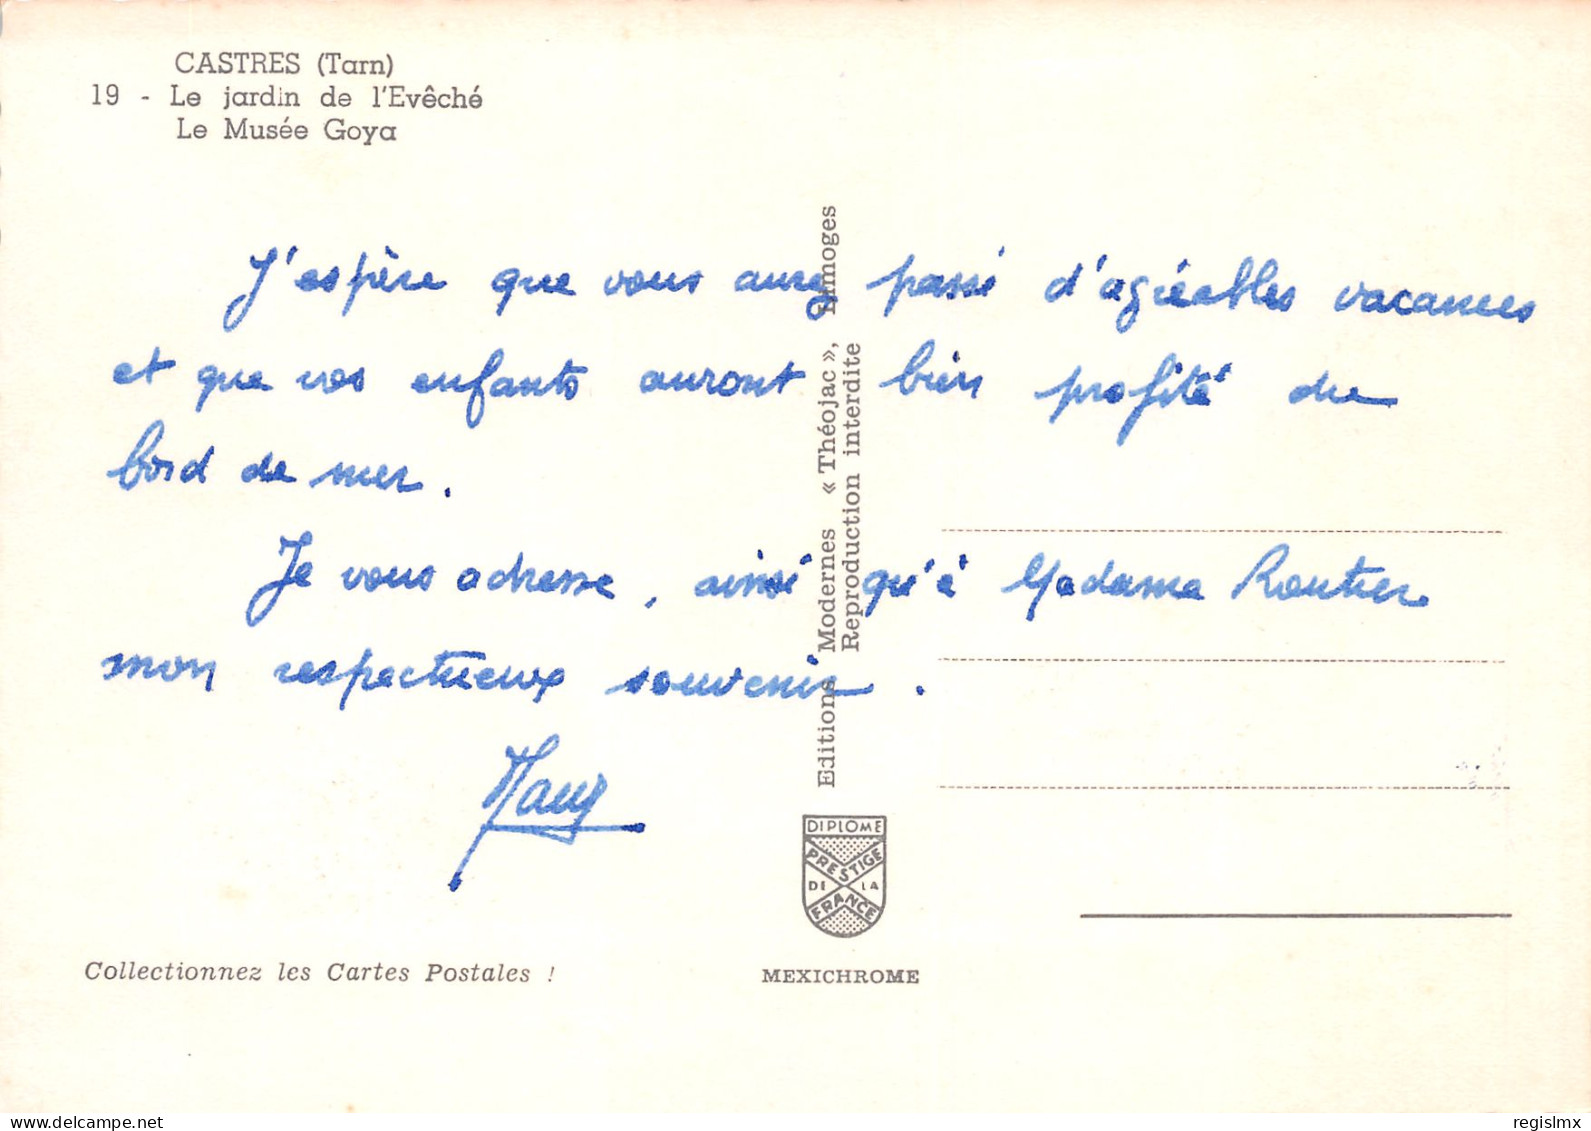 CASTRES (Tarn)
19 - Le jardin de l'Evêché
Le Musée Goya
J'espère que vous aurez passé d'agréables vacances
et que vos enfants auront bien profité du
bord de mer.
Je vous adresse, ainsi qu'à Madame Routier
mon respectueux souvenir.
Editions Modernes « Théojac », Limoges
Reproduction interdite
DIPLOME
PRESTIGE
DE LA
FRANCE
Collectionnez les Cartes Postales !
MEXICHROME
delcampe.net
regislmx